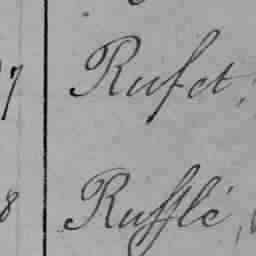 7 Rufet,
8 Rufflé,